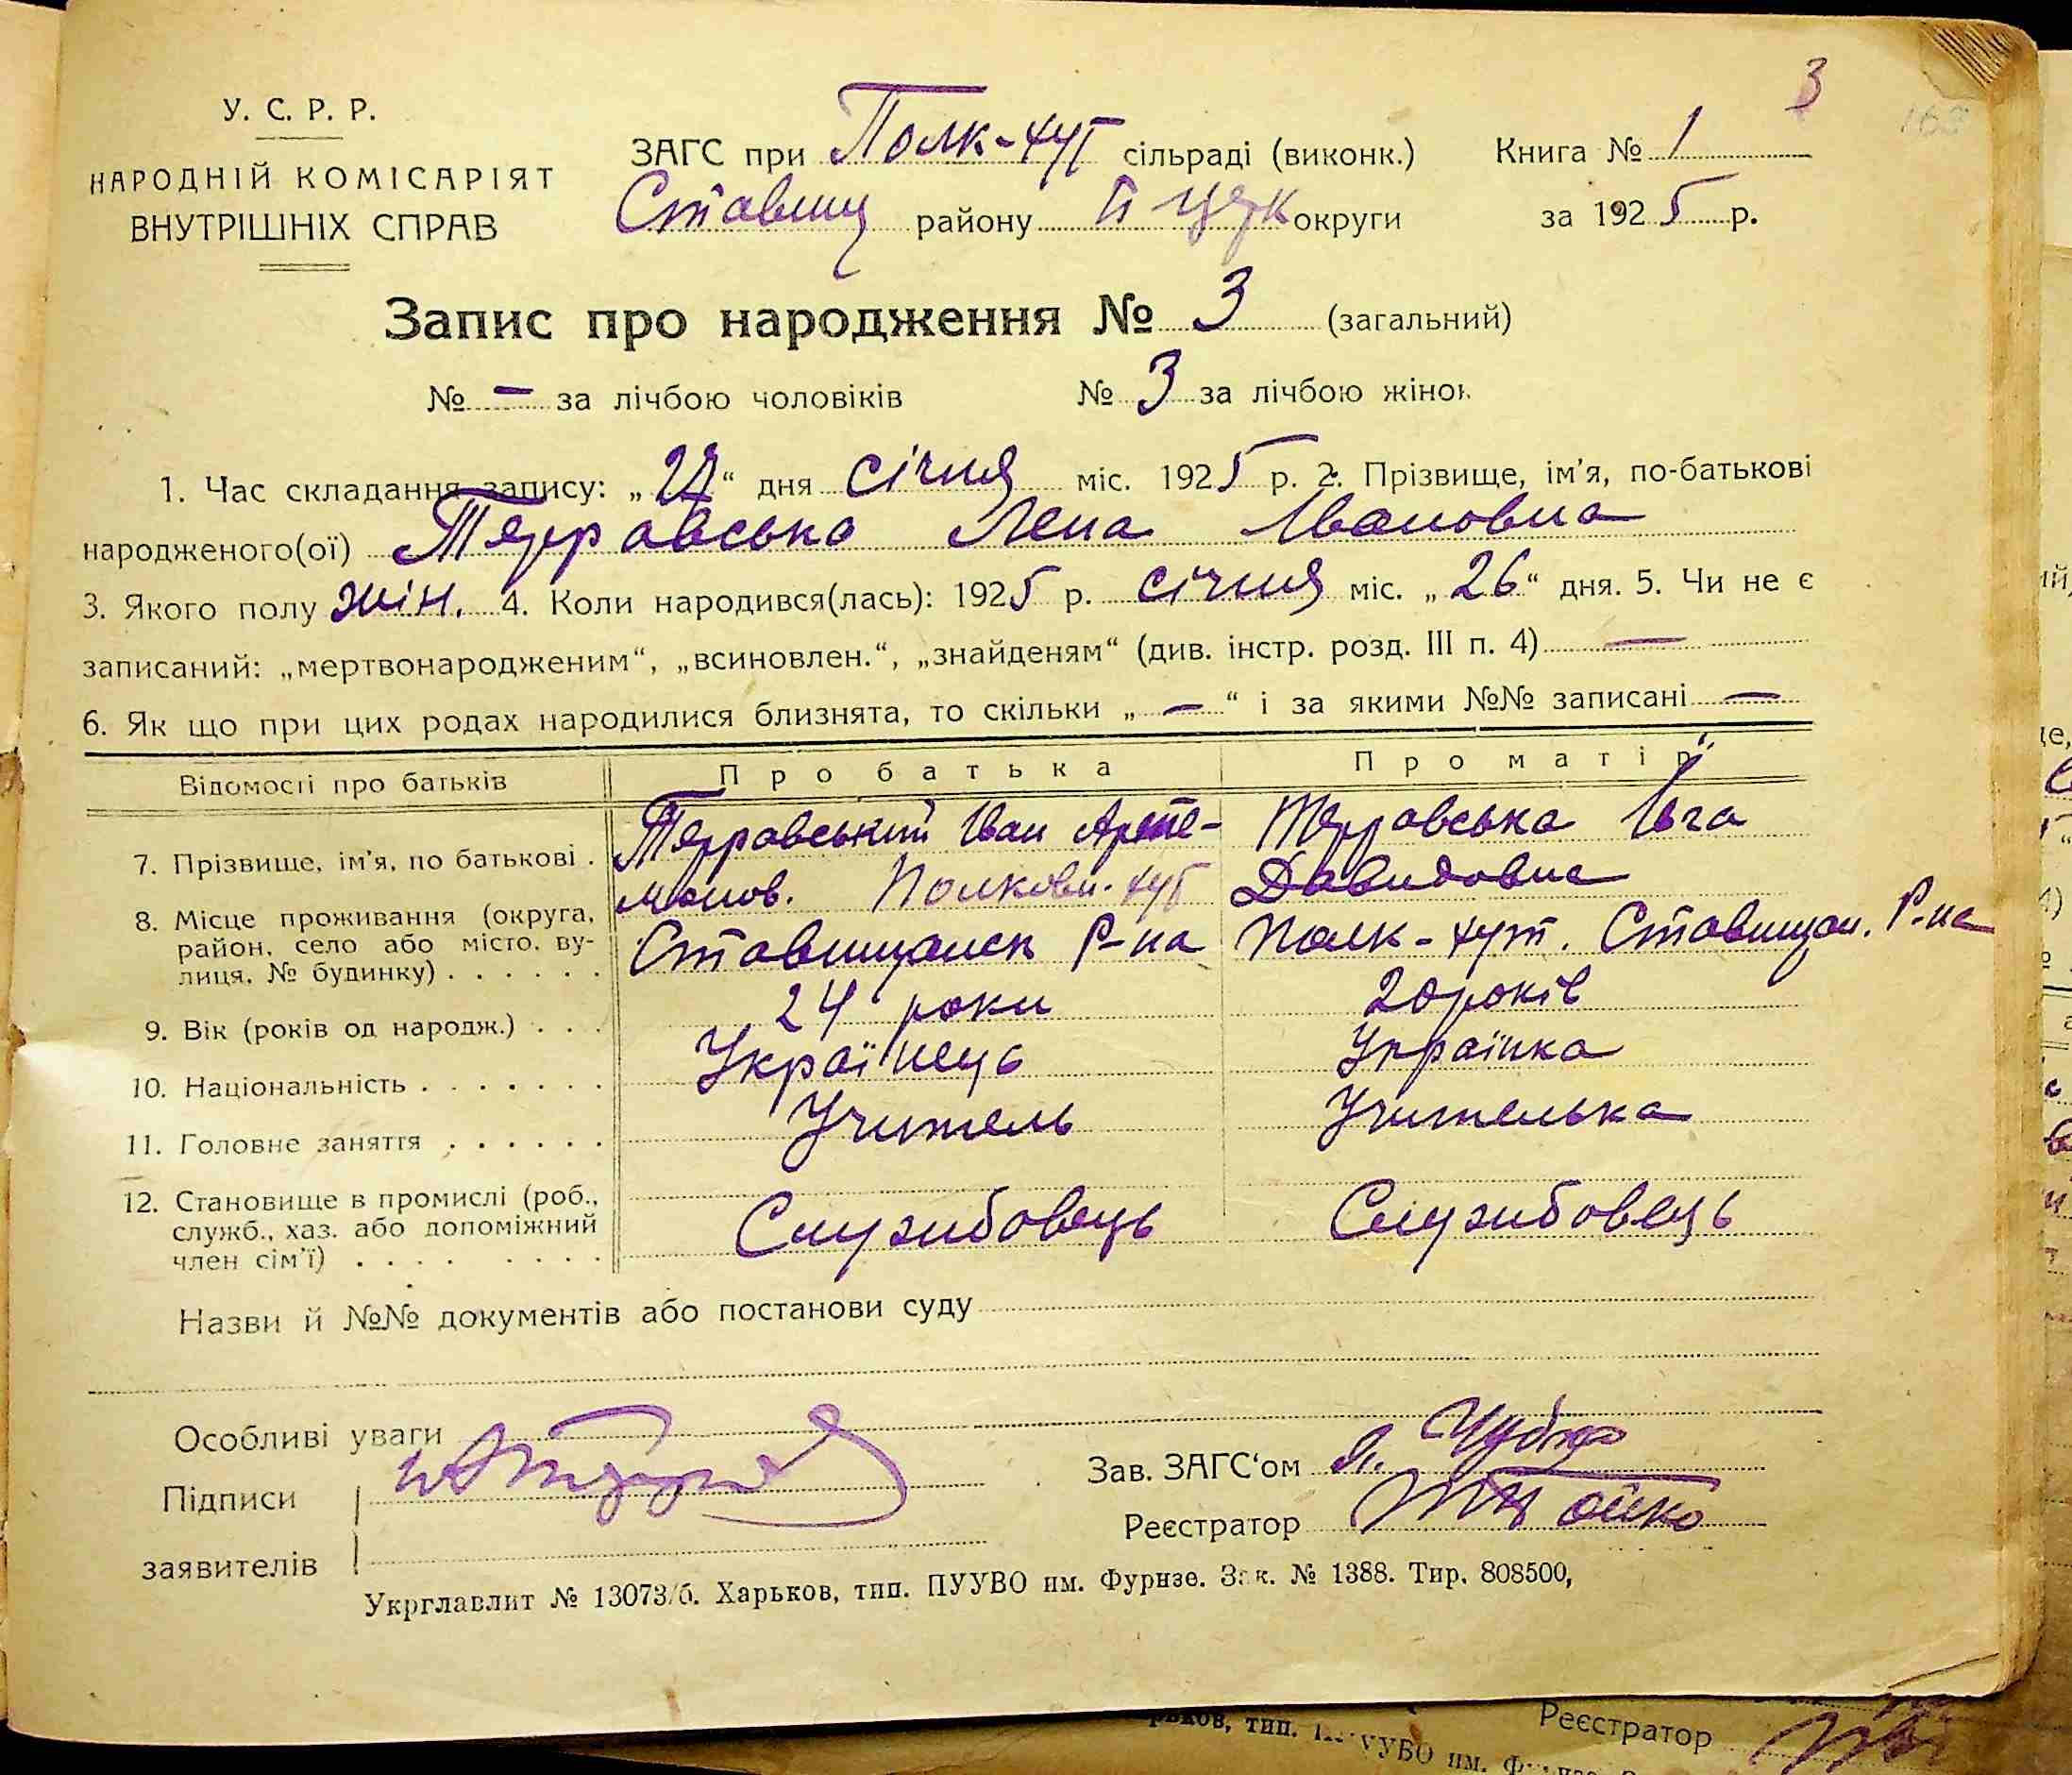 3
У. С. Р. Р.
НАРОДНІЙ КОМІСАРІЯТ
ВНУТРІШНІХ СПРАВ
ЗАГС при Полк-хут сільраді (виконк.)
Книга № 1
Ставищ району Б Церк округи
за 1925 р.
Запис про народження № 3 (загальний)
№ — за лічбою чоловіків № 3 за лічбою жінок
1. Час складання запису: „27“ дня січня міс. 1925 р. 2. Прізвище, ім'я, по-батькові
народженого(ої) Лена Івановна
3. Якого полу жін. 4. Коли народився(лась): 1925 р. січня міс. „26“ дня. 5. Чи не є
записаний: „мертвонародженим“, „всиновлен.“, „знайденям“ (див. інстр. розд. III п. 4) —
6. Як що при цих родах народилися близнята, то скільки „—“ і за якими №№ записані —
Відомості про батьків
Про батька
Про матір
7. Прізвище, ім'я, по батькові .
Іван Арте-
монов.
Давидовна
8. Місце проживання (округа,
район, село або місто, ву-
лиця, № будинку) . . . . . .
Полковн. хут
Ставищанск Р-на
Полк-хут. Ставищан. Р-на
9. Вік (років од народж.) . . .
24 роки
20 років
10. Національність . . . . . . .
Українець
Українка
11. Головне заняття . . . . . .
Учитель
Учителька
12. Становище в промислі (роб.,
служб., хаз. або допоміжний
член сім'ї) . . . . . . . .
Службовець
Службовець
Назви й №№ документів або постанови суду
Особливі уваги
Підписи
заявителів
Зав. ЗАГС'ом
Реєстратор
Укрглавлит № 13073/б. Харьков, тип. ПУУВО им. Фурнзе. Зак. № 1388. Тир. 808500,
Реєстратор